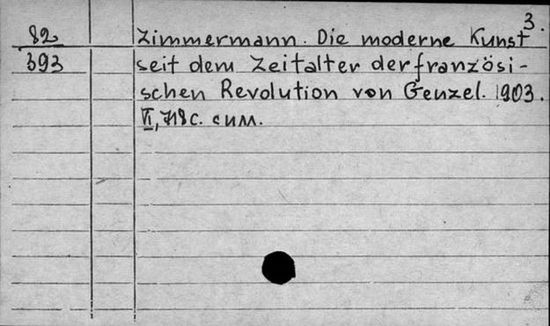 3.
82 Zimmermann. Die moderne Kunst
393 seit dem Zeitalter der französi-
schen Revolution von Genzel. 1903.
VI, 718 c. с илл.